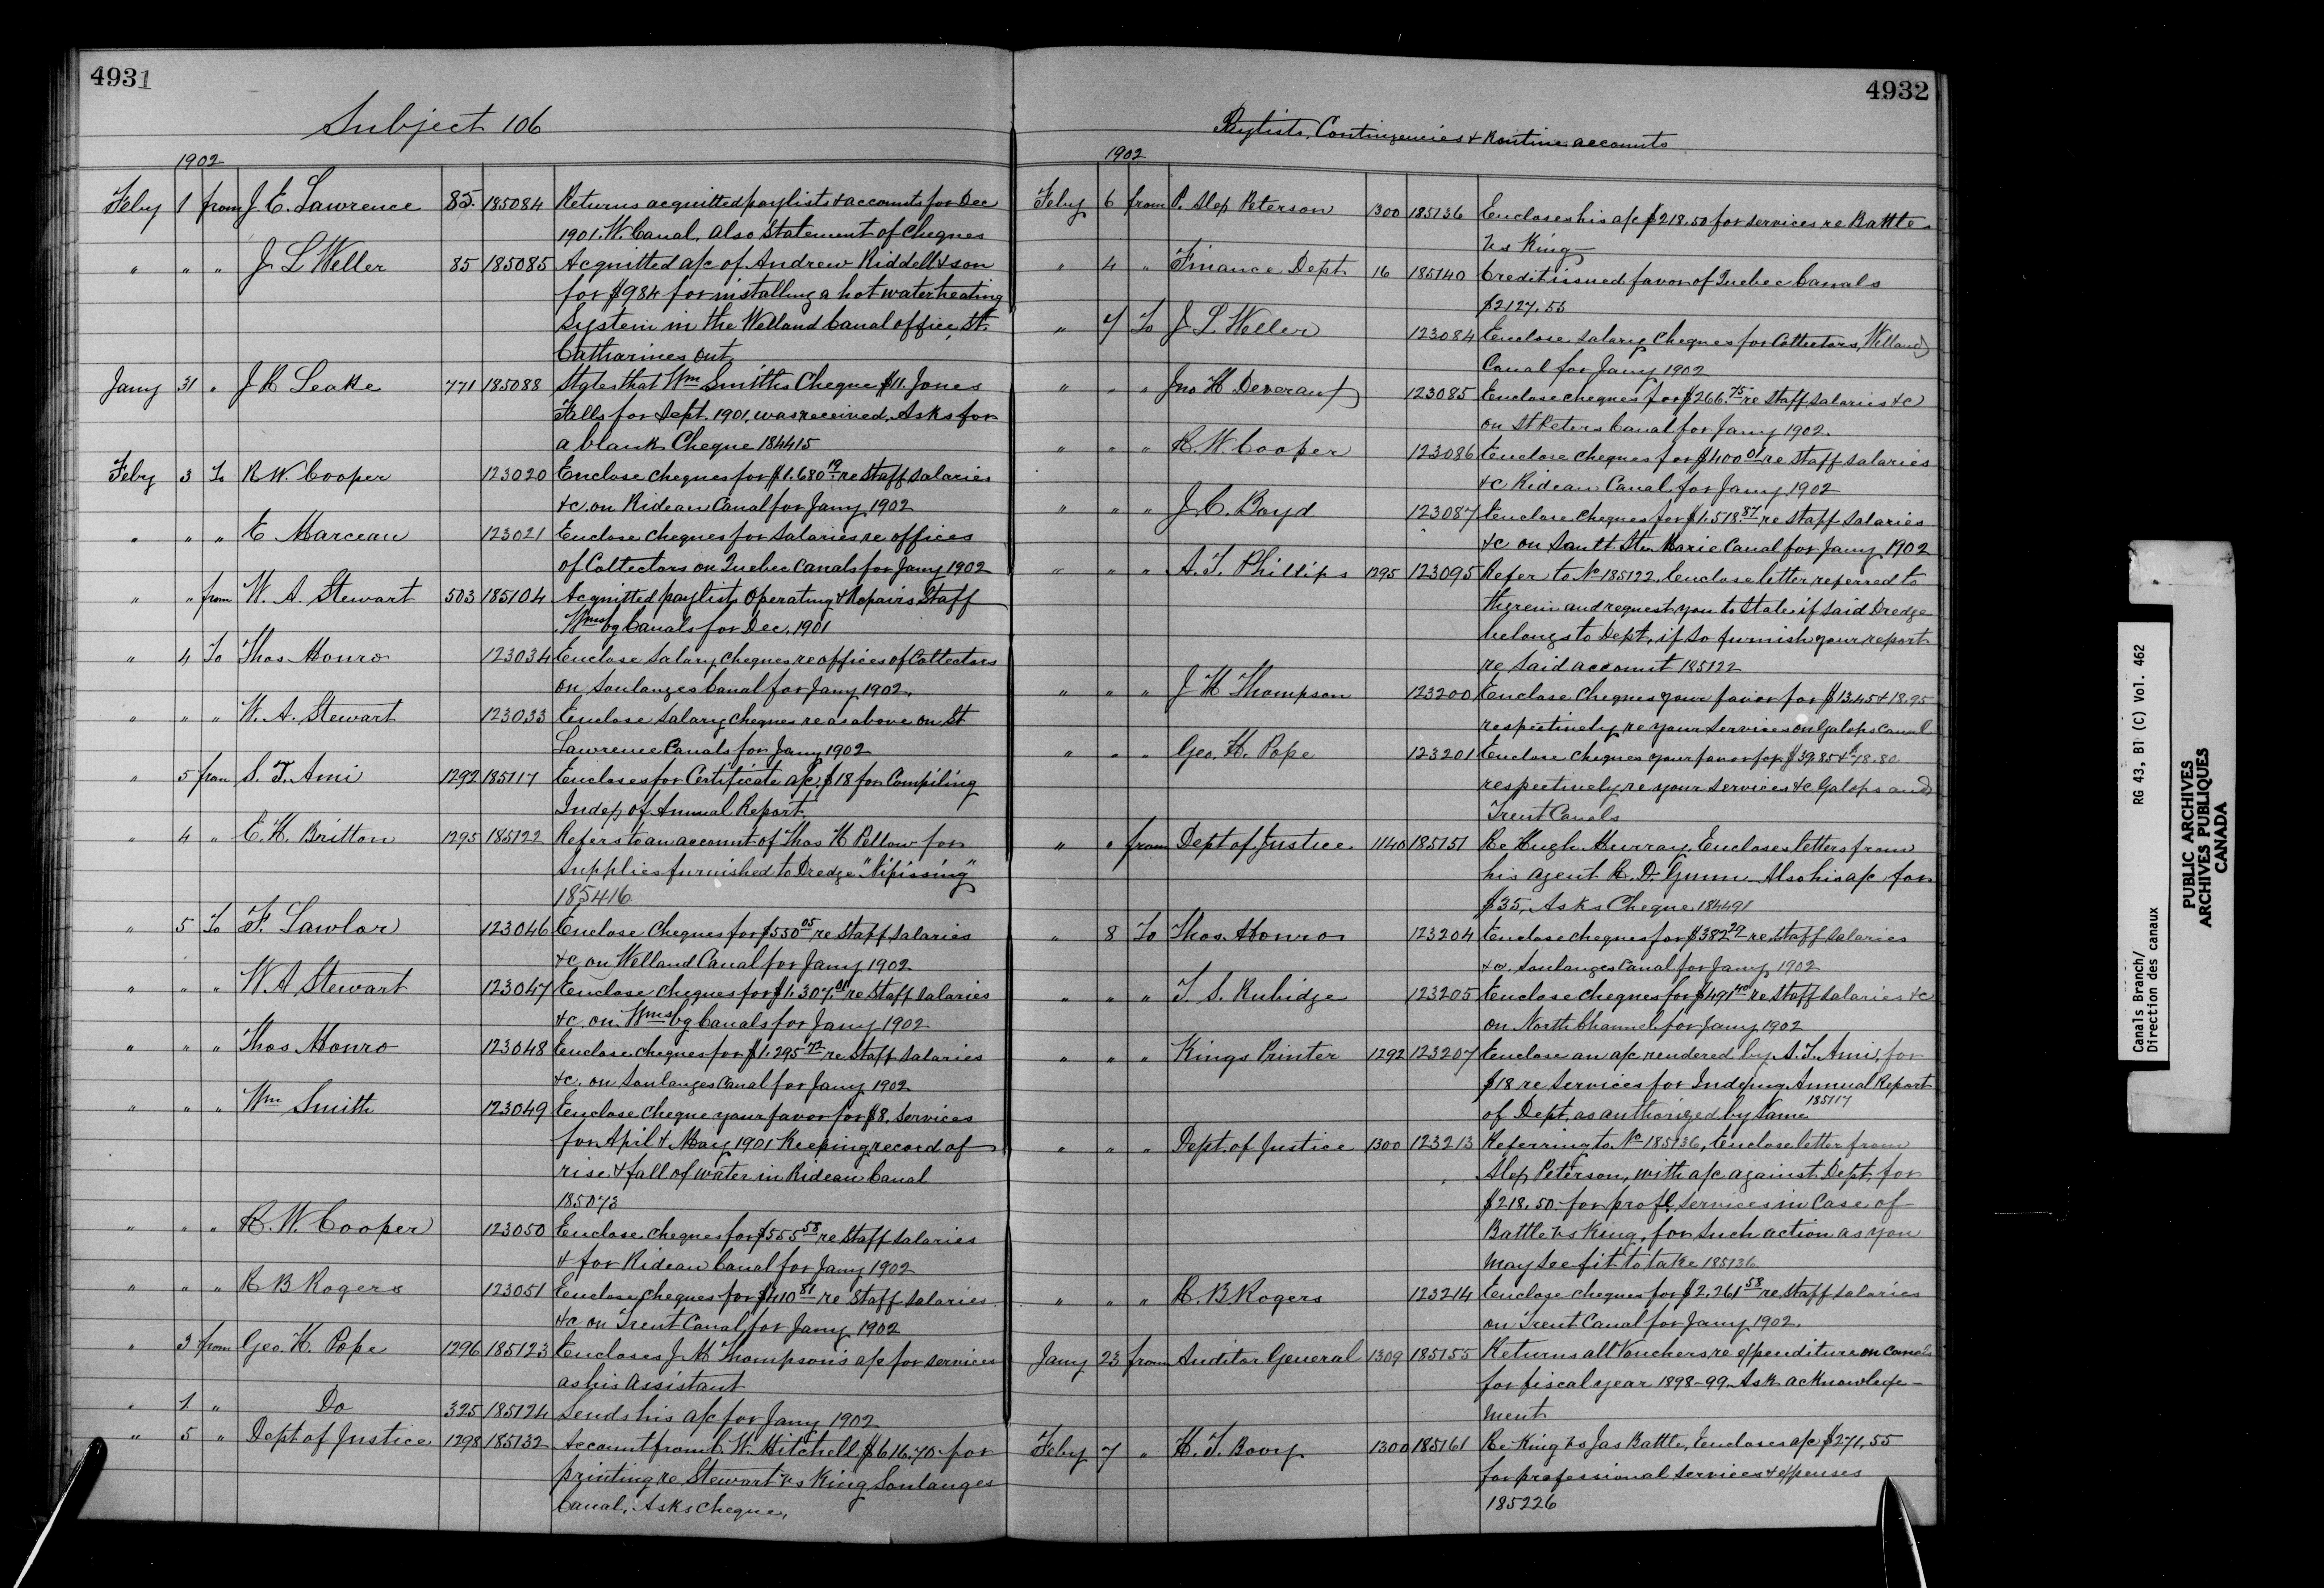 4931
Subject 106
1902
Feby 1 from J. E. Lawrence 85 185084 Returns acquitted paylists & accounts for Dec
1901. W. Canal. also Statement of Cheques
" " " J L Weller 85 185085 Acquitted a/c of Andrew Riddell & son
for $984 for installing a hot water heating
System in the Welland Canal office, St.
Catharines Ont.
Jany 31 " J R Leake 771 185088 States that Wm Smith's Cheque $11. Jones
Falls for Sept. 1901, was received. Asks for
a blank Cheque 184415
Feby 3 To R W. Cooper 123020 Enclose cheques for $1.680 19 re Staff salaries
&c. on Rideau Canal for Jany 1902
" " " E Marceau 123021 Enclose cheques for Salaries re offices
of Collectors on Quebec Canals for Jany 1902
" " from W. A. Stewart 503 185104 Acquitted paylists Operating & Repairs Staff
Wmsbg Canals for Dec. 1901
" 4 To Thos Monro 123034 Enclose Salary cheques re offices of Collectors
on Soulanges Canal for Jany 1902.
" " " W. A. Stewart 123033 Enclose Salary cheques re as above on St
Lawrence Canals for Jany 1902
" 5 from S. T. Ami 1292 185117 Encloses for Certificate a/c $18 for Compiling
Index of Annual Report
" 4 " E. H. Britton 1295 185122 Refers to an account of Thos H Pellow for
Supplies furnished to Dredge "Nipissing"
185416
" 5 To F. Lawlor 123046 Enclose Cheques for $550 05 re Staff salaries
&c. on Welland Canal for Jany 1902
" " " W. A Stewart 123047 Enclose Cheques for $1.307. 01 re Staff salaries
&c. on Wmsbg Canals for Jany 1902
" " " Thos Monro 123048 Enclose cheques for $1.295 72 re Staff salaries
&c. on Soulanges Canal for Jany 1902
" " " Wm Smith 123049 Enclose Cheque your favor for $8. Services
for April & May 1901 Keeping record of
rise & fall of water in Rideau Canal
185073
" " " R. W. Cooper 123050 Enclose cheques for $555 58 re Staff salaries
& for Rideau Canal for Jany 1902
" " " R B Rogers 123051 Enclose cheques for $410 81 re Staff salaries
&c on Trent Canal for Jany 1902
" 3 from Geo. H. Pope 1296 185123 Encloses J. H Thompson's a/c for services
as his Assistant
" 1 " Do 325 185124 Sends his a/c for Jany 1902
" 5 " Dept of Justice 1298 185132 Account from C. W. Mitchell $616.70 for
printing re Stewart vs King Soulanges
Canal, Asks cheque.
4932
Paylists, Contingencies & Routine accounts
1902
Feby 6 from P. Alex Peterson 1300 185136 Encloses his a/c $218.50 for services re Battle
vs King
" 4 " Finance Dept 16 185140 Credit issued favor of Quebec Canals
$2127.55
" 7 To J. L. Weller 123084 Enclose salary Cheques for Collectors, Welland
Canal for Jany 1902
" " " Jno H Deveraux 123085 Enclose cheques for $266. 75 re Staff salaries &c
on St Peters Canal for Jany 1902.
" " " R. W. Cooper 123086 Enclose cheques for $400 01 re Staff salaries
&c Rideau Canal for Jany 1902
" " " J. C. Boyd 123087 Enclose cheques for $1.518. 87 re Staff salaries
&c on Sault Ste. Marie Canal for Jany 1902
" " " A. T. Phillips 1295 123095 Refer to No 185122. Enclose letter referred to
therein and request you to state if said Dredge
belongs to Dept, if so furnish your report
re said account 185122
" " " J H Thompson 123200 Enclose Cheques your favor for $13.45 & 18.95
respectively re your services on Galops Canal
" " " Geo. H. Pope 123201 Enclose Cheques your favor for $39.85 & $78.80
respectively re your services &c Galops and
Trent Canals
" " from Dept of Justice 1140 185151 Re Hugh Murray. Encloses letters from
his agent R. D. Gunn. Also his a/c for
$35. Asks Cheque 184491
" 8 To Thos. Monro 123204 Enclose cheques for $382 29 re staff salaries
&c. Soulanges Canal for Jany 1902
" " " T. S. Rubidge 123205 Enclose cheques for $491 40 re Staff salaries &c
on North Channel for Jany 1902
" " " Kings Printer 1292 123207 Enclose an a/c rendered by S. T. Ami, for
$18 re Services for Indexing Annual Report
of Dept. as authorized by Same 185117
" " " Dept. of Justice 1300 123213 Referring to No 185136, Enclose letter from
Alex Peterson, with a/c against Dept. for
$218.50 for profl. services in case of
Battle vs King, for such action as you
may see fit to take 185136
" " " R. B Rogers 123214 Enclose cheques for $2.261 58 re Staff salaries
on Trent Canal for Jany 1902.
Jany 23 from Auditor General 1309 185155 Returns all Vouchers re expenditure on Canals
for fiscal year 1898-99. Ask acknowledge-
ment
Feby 7 " H. T. Bovey 1300 185161 Re King vs Jas Battle, Encloses a/c $271.55
for professional services & expenses
185226
Canals Branch/ RG 43, B1 (C) Vol. 462
Direction des canaux
PUBLIC ARCHIVES
ARCHIVES PUBLIQUES
CANADA